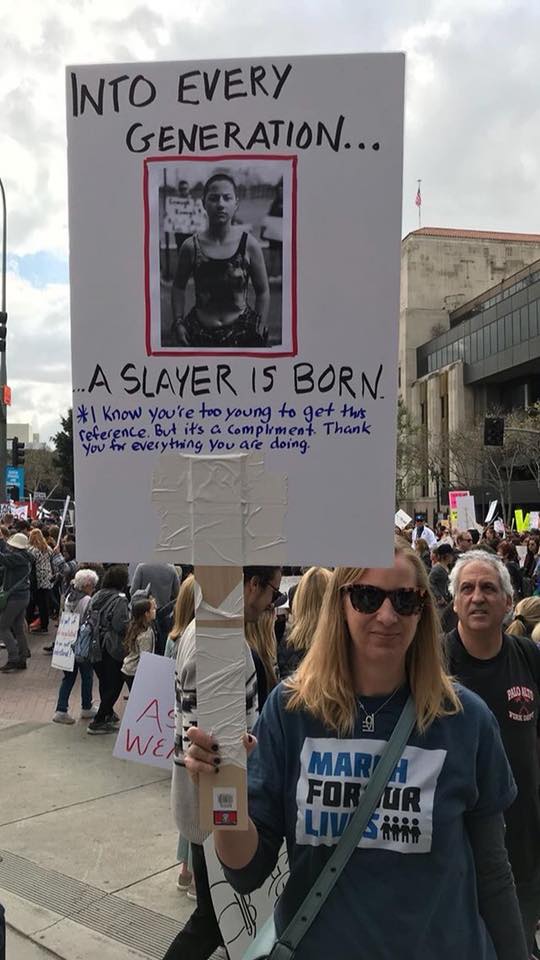 INTO EVERY
GENERATION...
...A SLAYER IS BORN.
*I know you're too young to get this
reference. But it's a compliment. Thank
you for everything you are doing.
MARCH
FOR OUR
LIVES
PALO ALTO
FIRE DEPT
AS
WE